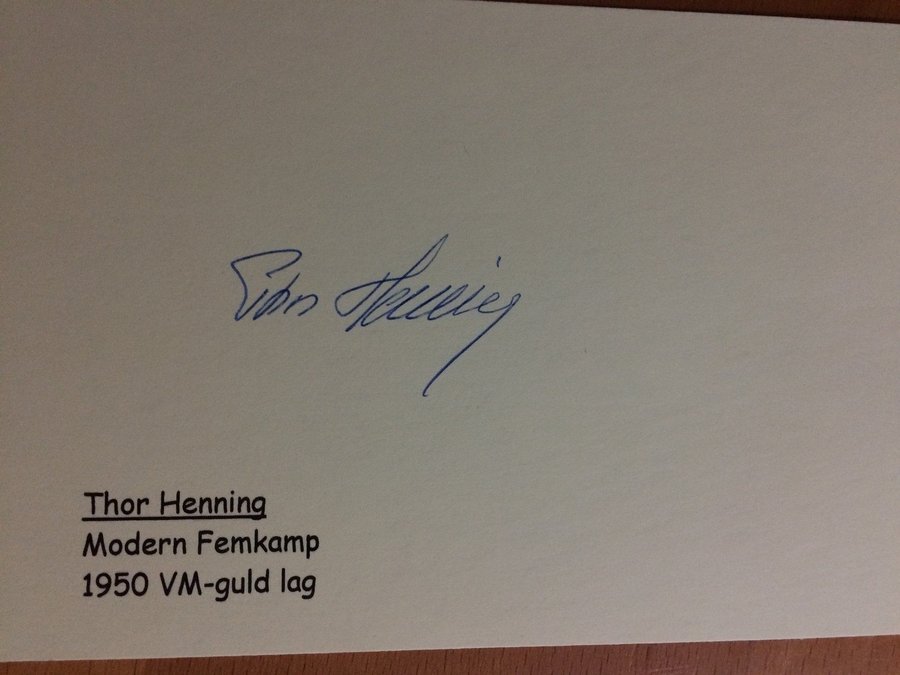 Thor Henning
Thor Henning
Modern Femkamp
1950 VM-guld lag